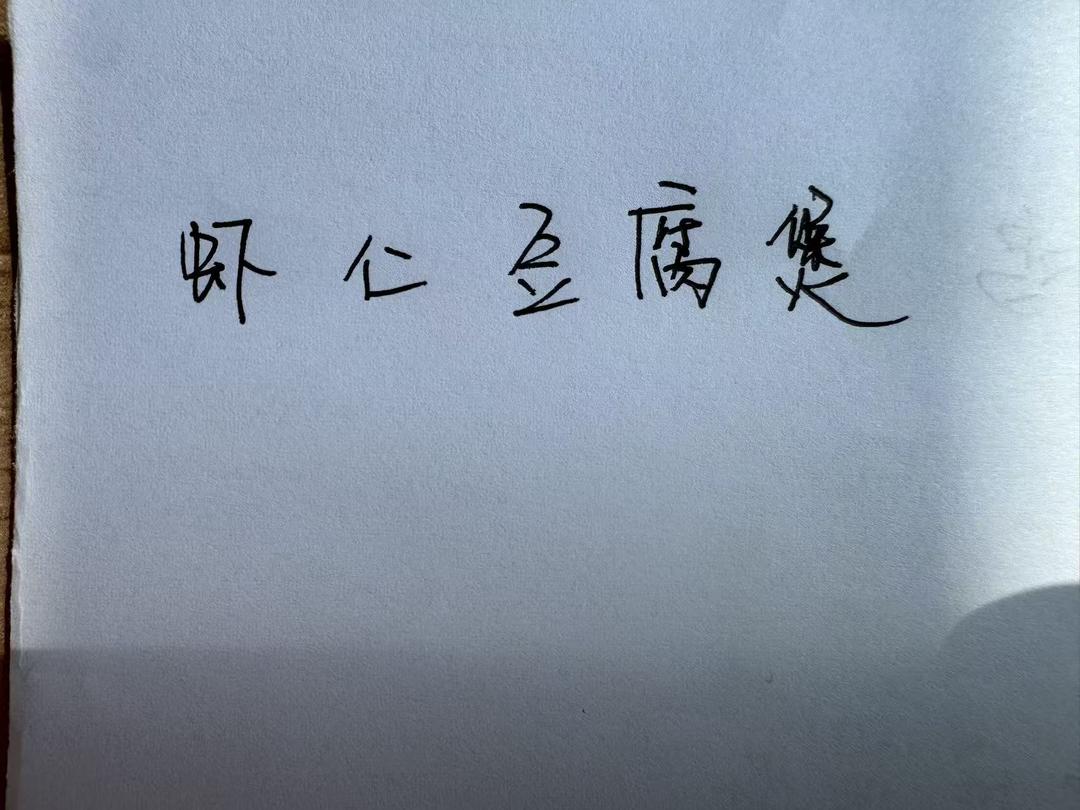 虾仁豆腐煲